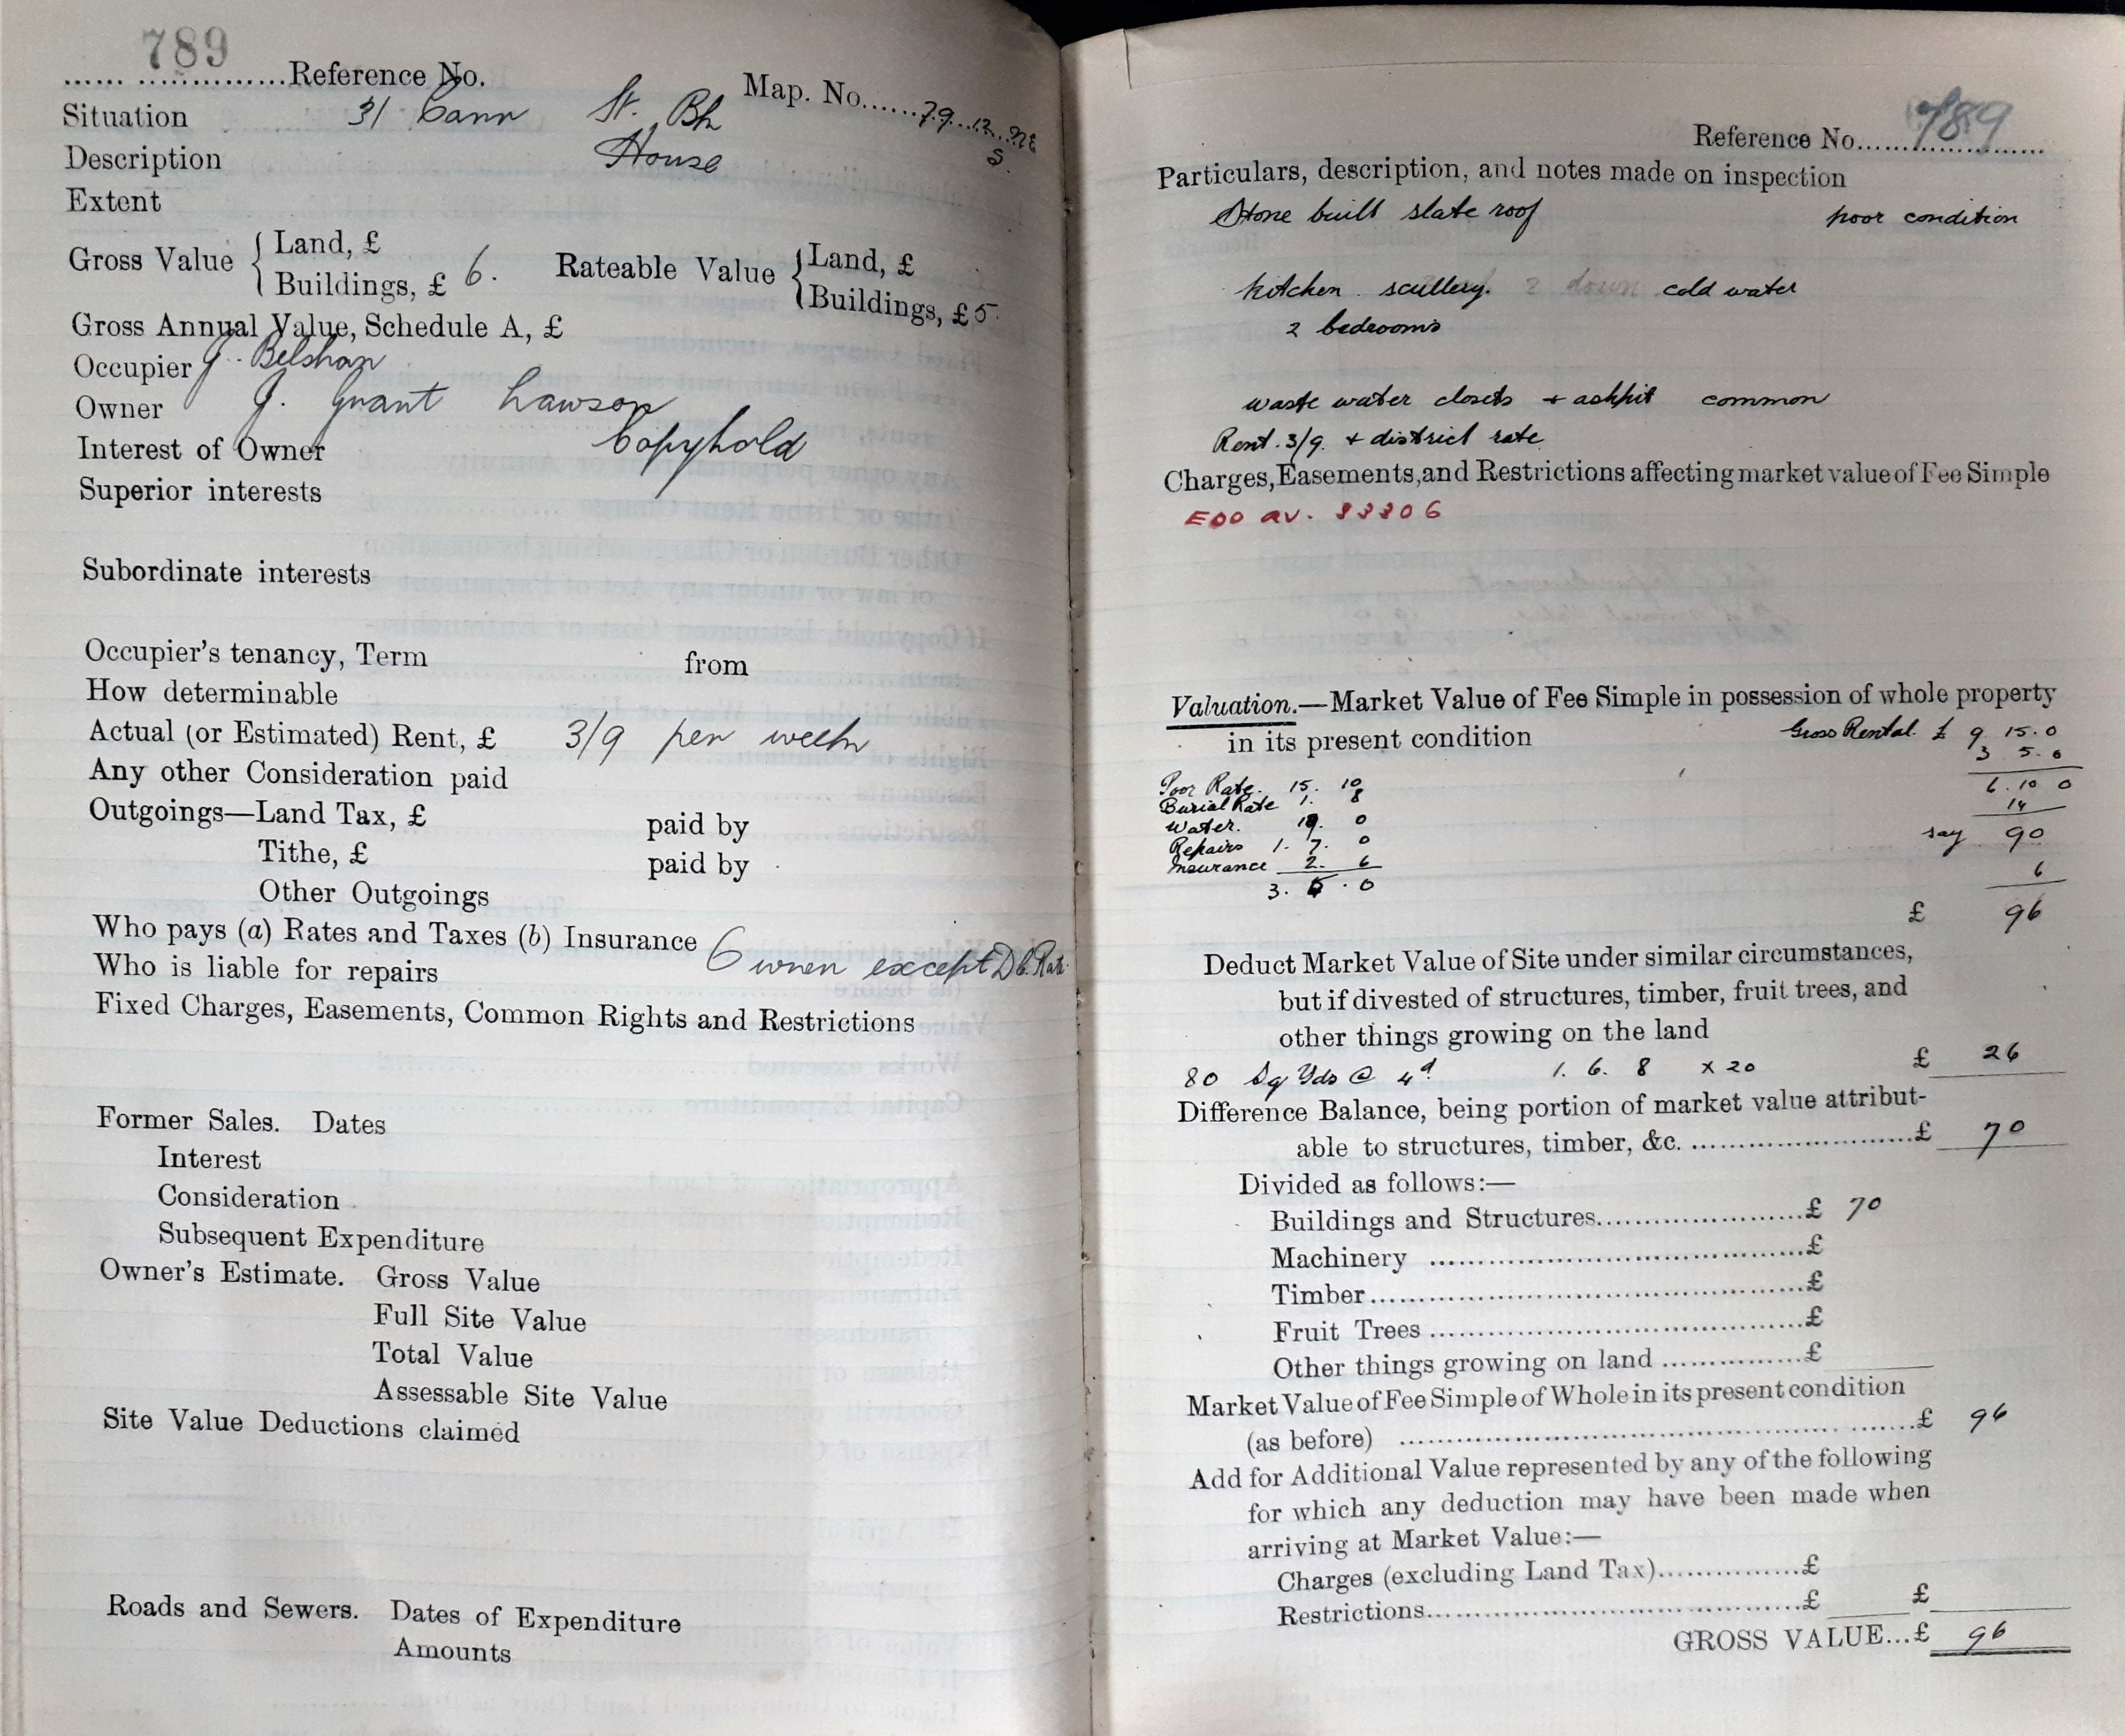 789
...... ..............Reference No.
Map. No......79.12.
Situation 31 Cann St. Bh
S.
Description House
Extent
Gross Value { Land, £
Buildings, £ 6.
Rateable Value { Land, £
Buildings, £ 5.
Gross Annual Value, Schedule A, £
Occupier J. Belshan
Owner J. Grant Lawson
Interest of Owner Copyhold
Superior interests
Subordinate interests
Occupier's tenancy, Term from
How determinable
Actual (or Estimated) Rent, £ 3/9 per week
Any other Consideration paid
Outgoings—Land Tax, £ paid by
Tithe, £ paid by
Other Outgoings
Who pays (a) Rates and Taxes (b) Insurance
Who is liable for repairs Owner except D.C. Rate
Fixed Charges, Easements, Common Rights and Restrictions
Former Sales. Dates
Interest
Consideration
Subsequent Expenditure
Owner's Estimate. Gross Value
Full Site Value
Total Value
Assessable Site Value
Site Value Deductions claimed
Roads and Sewers. Dates of Expenditure
Amounts
Reference No. 789
Particulars, description, and notes made on inspection
Stone built slate roof poor condition
kitchen. scullery. 2 down cold water
2 bedrooms
waste water closets + ashpit common
Rent. 3/9. + district rate
Charges, Easements, and Restrictions affecting market value of Fee Simple
EDO av. 33306
Valuation.—Market Value of Fee Simple in possession of whole property
in its present condition
Gross Rental £ 9 15.0
3 5.0
6.10 0
14
say 90
6
£ 96
Poor Rate. 15. 10
Burial Rate 1. 8
Water. 18. 0
Repairs 1. 7. 0
Insurance 2. 6
3. 5. 0
Deduct Market Value of Site under similar circumstances,
but if divested of structures, timber, fruit trees, and
other things growing on the land
80 Sq Yds @ 4d 1. 6. 8 x 20 £ 26
Difference Balance, being portion of market value attribut-
able to structures, timber, &c. ..........................£ 70
Divided as follows:—
Buildings and Structures........................£ 70
Machinery ............................................£
Timber...................................................£
Fruit Trees ............................................£
Other things growing on land ................£
Market Value of Fee Simple of Whole in its present condition
(as before) ..........................................................£ 96
Add for Additional Value represented by any of the following
for which any deduction may have been made when
arriving at Market Value:—
Charges (excluding Land Tax)................£
Restrictions.............................................£ £
GROSS VALUE...£ 96